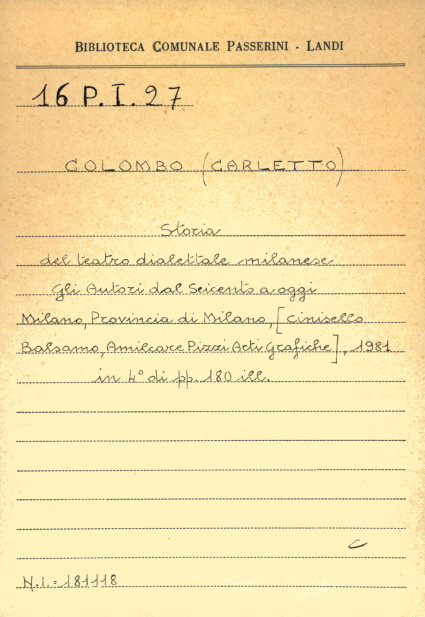 BIBLIOTECA COMUNALE PASSERINI - LANDI
16 P.I.27
COLOMBO (CARLETTO)
Storia
del teatro dialettale milanese
Gli Autori dal Seicento a oggi
Milano, Provincia di Milano, [Cinisello
Balsamo, Amilcare Pizzi Arti Grafiche], 1981
in 4° di pp. 180 ill.
C
N.I.= 181118